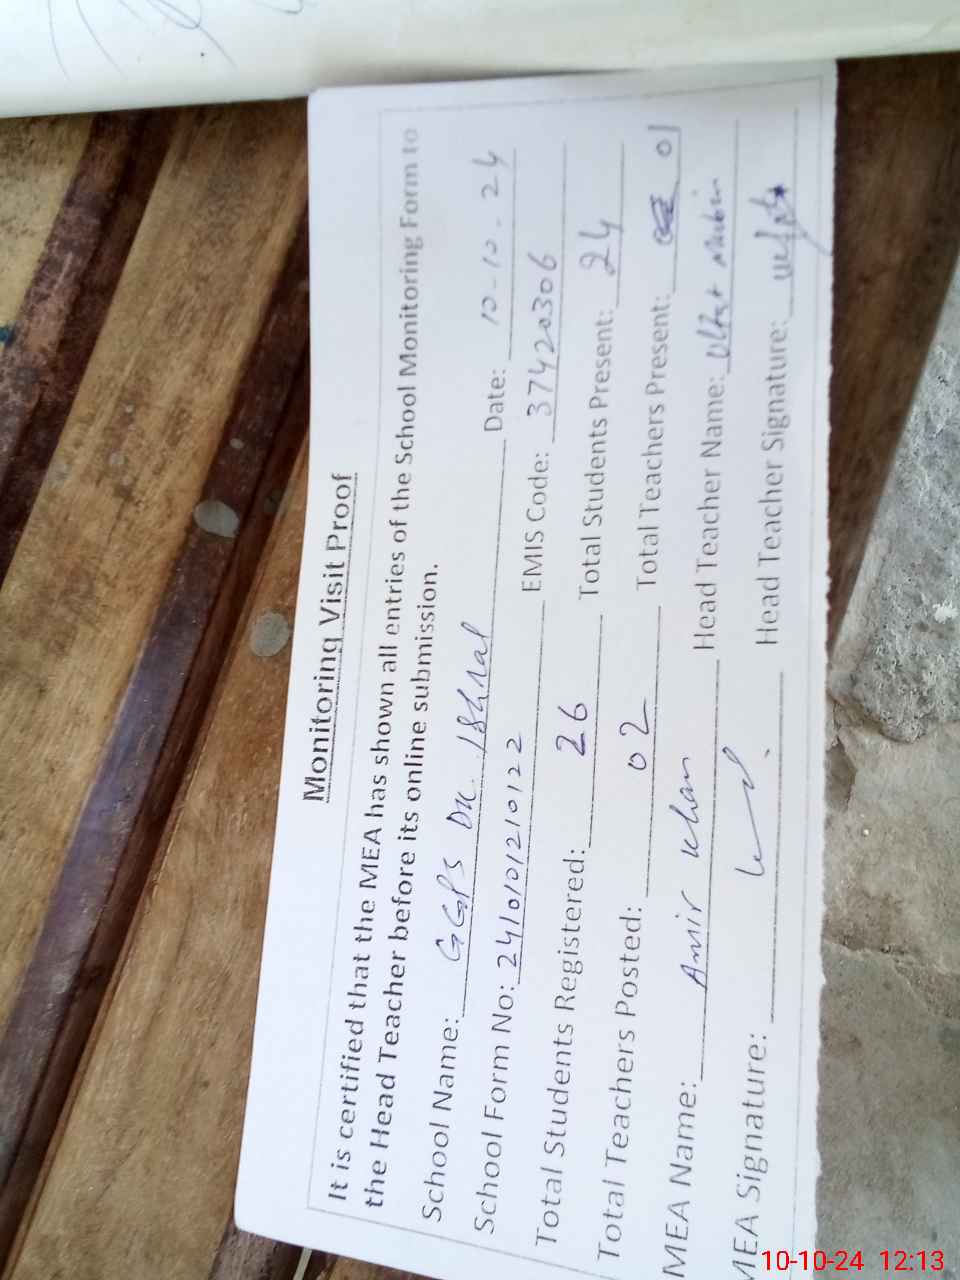 Monitoring Visit Proof
It is certified that the MEA has shown all entries of the School Monitoring Form to
the Head Teacher before its online submission.
School Name: GGPS DK. Date: 10-10-24
School Form No: 2410101210122 EMIS Code: 37420306
Total Students Registered: 26 Total Students Present: 24
Total Teachers Posted: 02 Total Teachers Present: 01
MEA Name: Amir Khan Head Teacher Name:
MEA Signature: Head Teacher Signature:
10-10-24 12:13